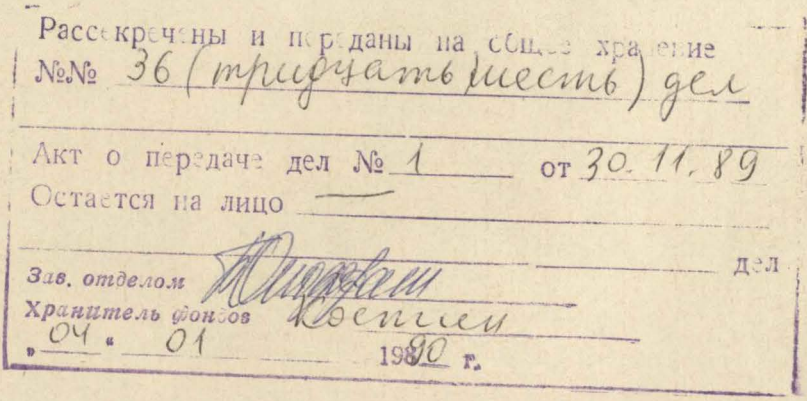 Рассекречены и переданы на общее хранение
№№ 36 (тридцать шесть) дел
Акт о передаче дел № 1 от 30.11.89
Остается на лицо —
дел
Зав. отделом
Хранитель фондов
„04“ 01 1990 г.